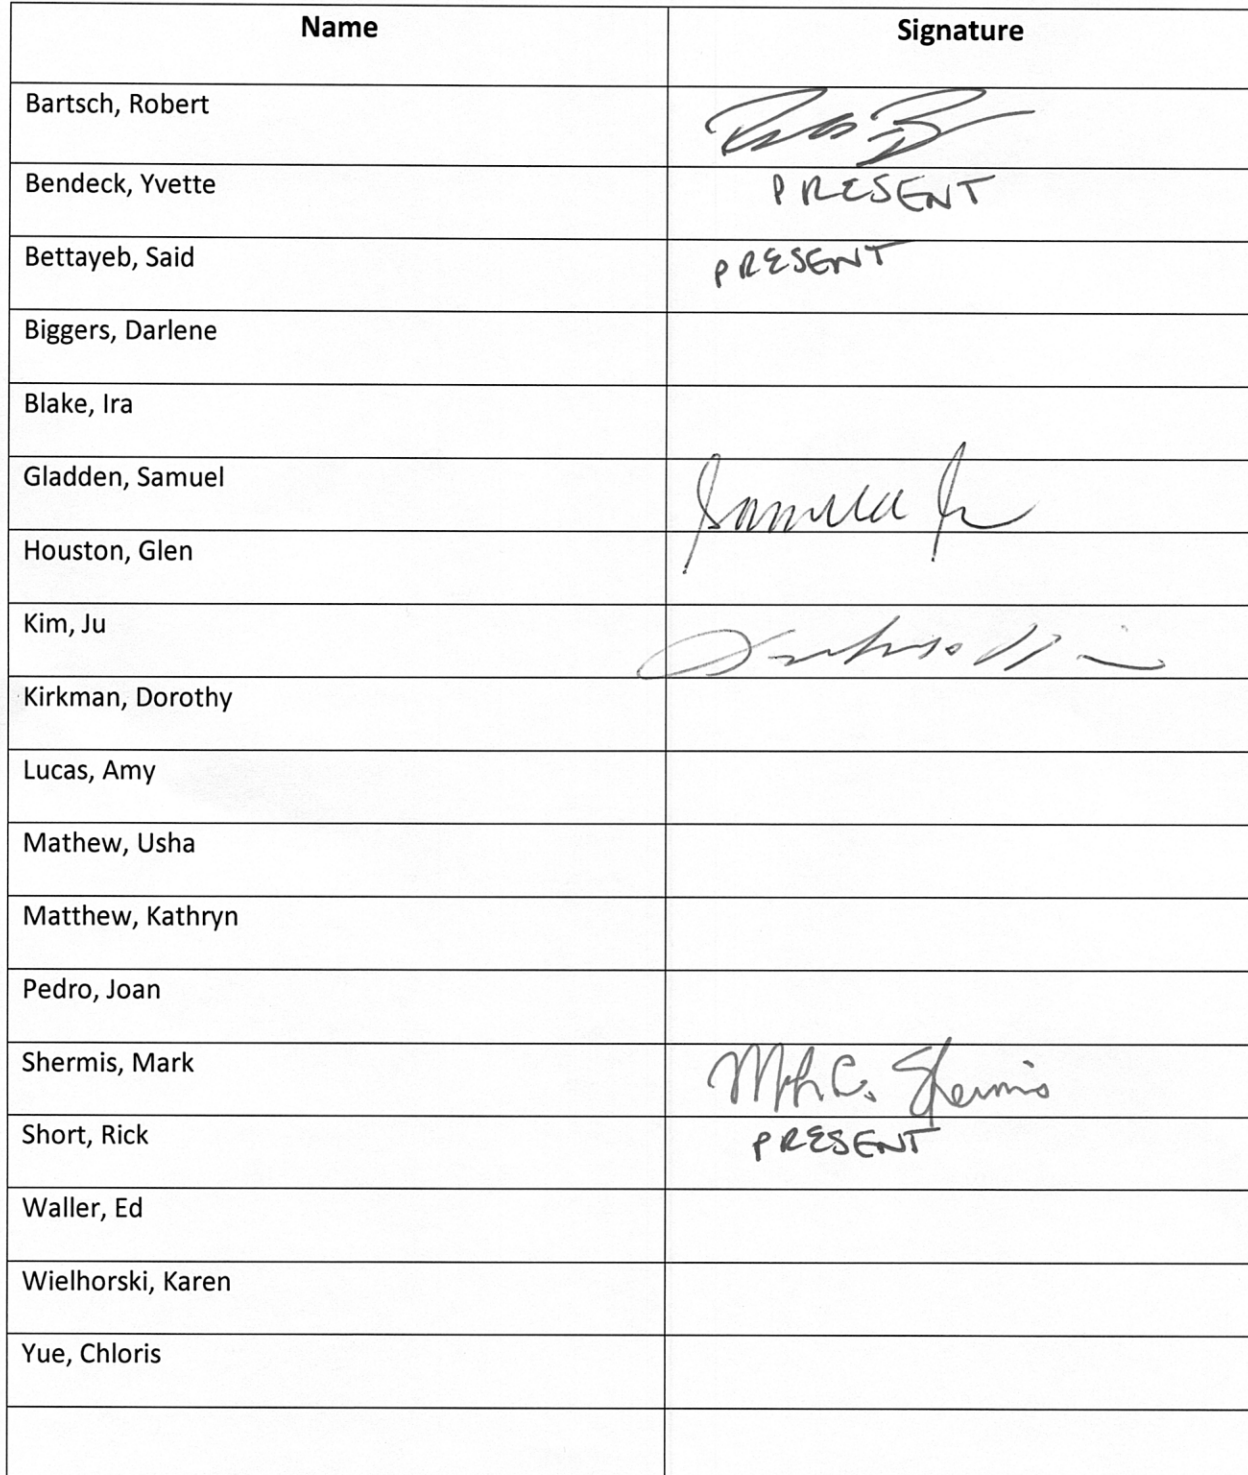 Name Signature
Bartsch, Robert
Bendeck, Yvette PRESENT
Bettayeb, Said PRESENT
Biggers, Darlene
Blake, Ira
Gladden, Samuel
Houston, Glen
Kim, Ju
Kirkman, Dorothy
Lucas, Amy
Mathew, Usha
Matthew, Kathryn
Pedro, Joan
Shermis, Mark C. Shermis
Short, Rick PRESENT
Waller, Ed
Wielhorski, Karen
Yue, Chloris